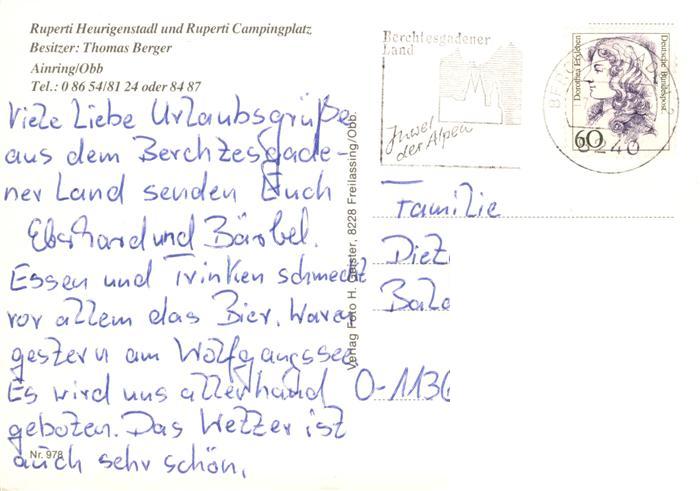 Ruperti Heurigenstadl und Ruperti Campingplatz
Besitzer: Thomas Berger
Ainring/Obb
Tel.: 0 86 54/81 24 oder 84 87
Viele Liebe Urlaubsgrüße
aus dem Berchtesgade-
ner Land senden Euch
Eberhard und Bärbel.
Essen und Trinken schmeckt
vor allem das Bier. Waren
gestern am Wolfgangssee
Es wird uns allerhand
geboten. Das Wetter ist
auch sehr schön.
Nr. 978
Verlag Foto H. Geister, 8228 Freilassing/Obb.
Berchtesgadener
Land
Juwel
der Alpen
Dorothea Erxleben
Deutsche Bundespost
60
8240
Familie
Diet
O-1136